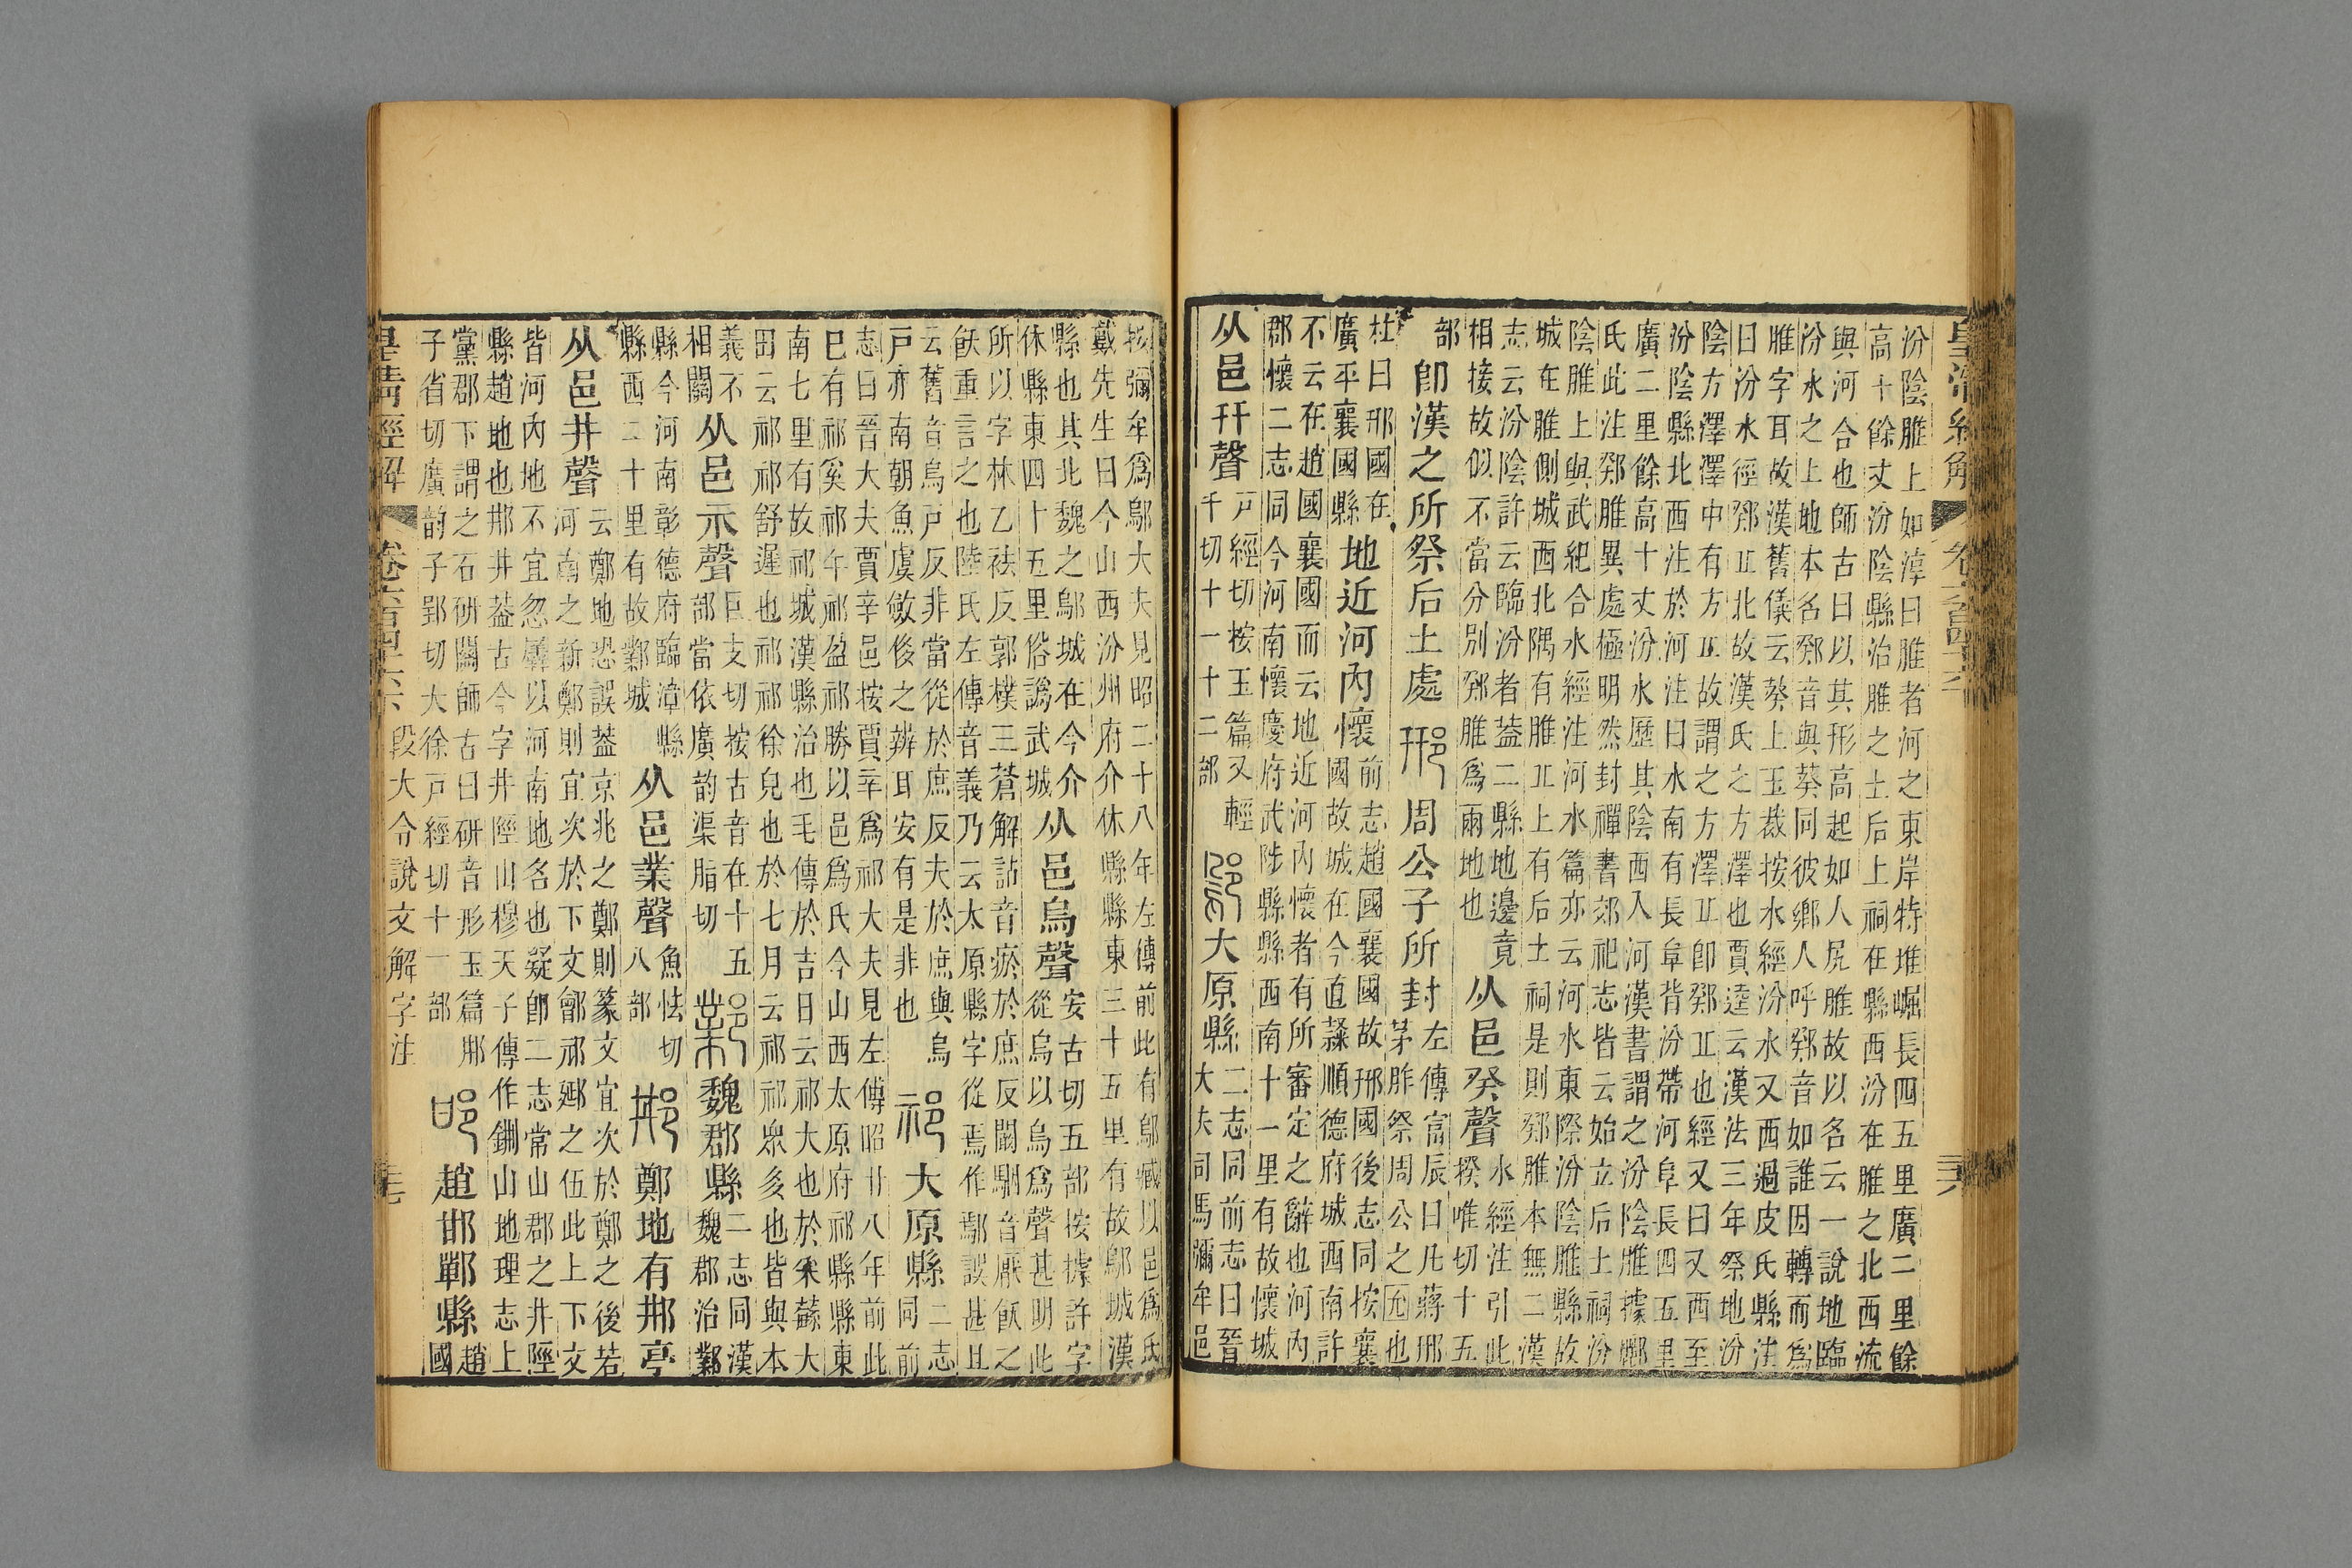 皇清經解 卷六百四十六
汾陰脽上如淳曰脽者河之東岸特堆崛長四五里廣二里餘
高十餘丈汾陰縣治脽之上后土祠在縣西汾在脽之北西流
與河合也師古曰以其形高起如人尻脽故以名云一說地臨
汾水之上地本名鄈音與葵同彼鄉人呼鄈音如誰因轉而爲
脽字耳故漢舊儀云葵上玉裁按水經汾水又西過皮氏縣注
曰汾水徑鄈丘北故漢氏之方澤也賈逵云漢法三年祭地汾
陰方澤澤中有方丘故謂之方澤丘卽鄈丘也經又曰又西至
汾陰縣北西注於河注曰水南有長阜背汾帶河阜長四五里
廣二里餘高十丈汾水歷其陰西入河漢書謂之汾陰脽據酈
氏此注鄈脽異處極明然封禪書郊祀志皆云始立后土祠汾
陰脽上與武紀合水經注河水篇亦云河水東際汾陰脽縣故
城在脽側城西北隅有脽丘上有后土祠是則鄈脽本無二漢
志云汾陰許云臨汾者葢二縣地邊竟
相接故似不當分別鄈脽爲兩地也
从邑癸聲
水經注引此
揆唯切十五
部
卽漢之所祭后土處 邢 周公子所封
左傳富辰曰凡蔣邢
茅胙祭周公之胤也
杜曰邢國在
廣平襄國縣
地近河內懷
前志趙國襄國故邢國後志同按襄
國故城在今直隸順德府城西南許
不云在趙國襄國而云地近河內懷者有所審定之辭也河內
郡懷二志同今河南懷慶府武陟縣縣西南十一里有故懷城
从邑幵聲
戸經切按玉篇又輕
千切十一十二部
鄔 大原縣
二志同前志曰晉
大夫司馬彌牟邑
按彌牟爲鄔大夫見昭二十八年左傳前此有鄔臧以邑爲氏
戴先生曰今山西汾州府介休縣縣東三十五里有故鄔城漢
縣也其北魏之鄔城在今介
休縣東四十五里俗譌武城
从邑烏聲
安古切五部按據許字
從烏以烏爲聲甚明此
所以字林乙袪反郭樸三蒼解詁音瘀於庶反闞駰音厭飫之
飫重言之也陸氏左傳音義乃云太原縣字從焉作鄢誤甚且
云舊音烏戸反非當從於庶反夫於庶與烏
戸亦南朝魚虞斂侈之辨耳安有是非也
祁 大原縣
二志
同前
志曰晉大夫賈辛邑按賈辛爲祁大夫見左傳昭廿八年前此
巳有祁奚祁午祁盈祁勝以邑爲氏今山西太原府祁縣縣東
南七里有故祁城漢縣治也毛傳於吉日云祁大也於采蘩大
田云祁祁舒遲也祁祁徐兒也於七月云祁祁眾多也皆與本
義不
相關
从邑示聲
巨支切按古音在十五
部當依廣韵渠脂切
鄴 魏郡縣
二志同漢
魏郡治鄴
縣今河南彰德府臨漳縣
縣西二十里有故鄴城
从邑業聲
魚怯切
八部
邢 鄭地有邢亭
从邑井聲
云鄭地恐誤葢京兆之鄭則篆文宜次於鄭之後若
河南之新鄭則宜次於下文鄶邟郔之伍此上下文
皆河內地不宜忽羼以河南地名也疑卽二志常山郡之井陘
縣趙地也邢井葢古今字井陘山穆天子傳作鈃山地理志上
黨郡下謂之石研關師古曰研音形玉篇邢
子省切廣韵子郢切大徐戸經切十一部
邯 趙邯鄲縣
趙
國
皇清經解 卷六百四十六 段大令說文解字注